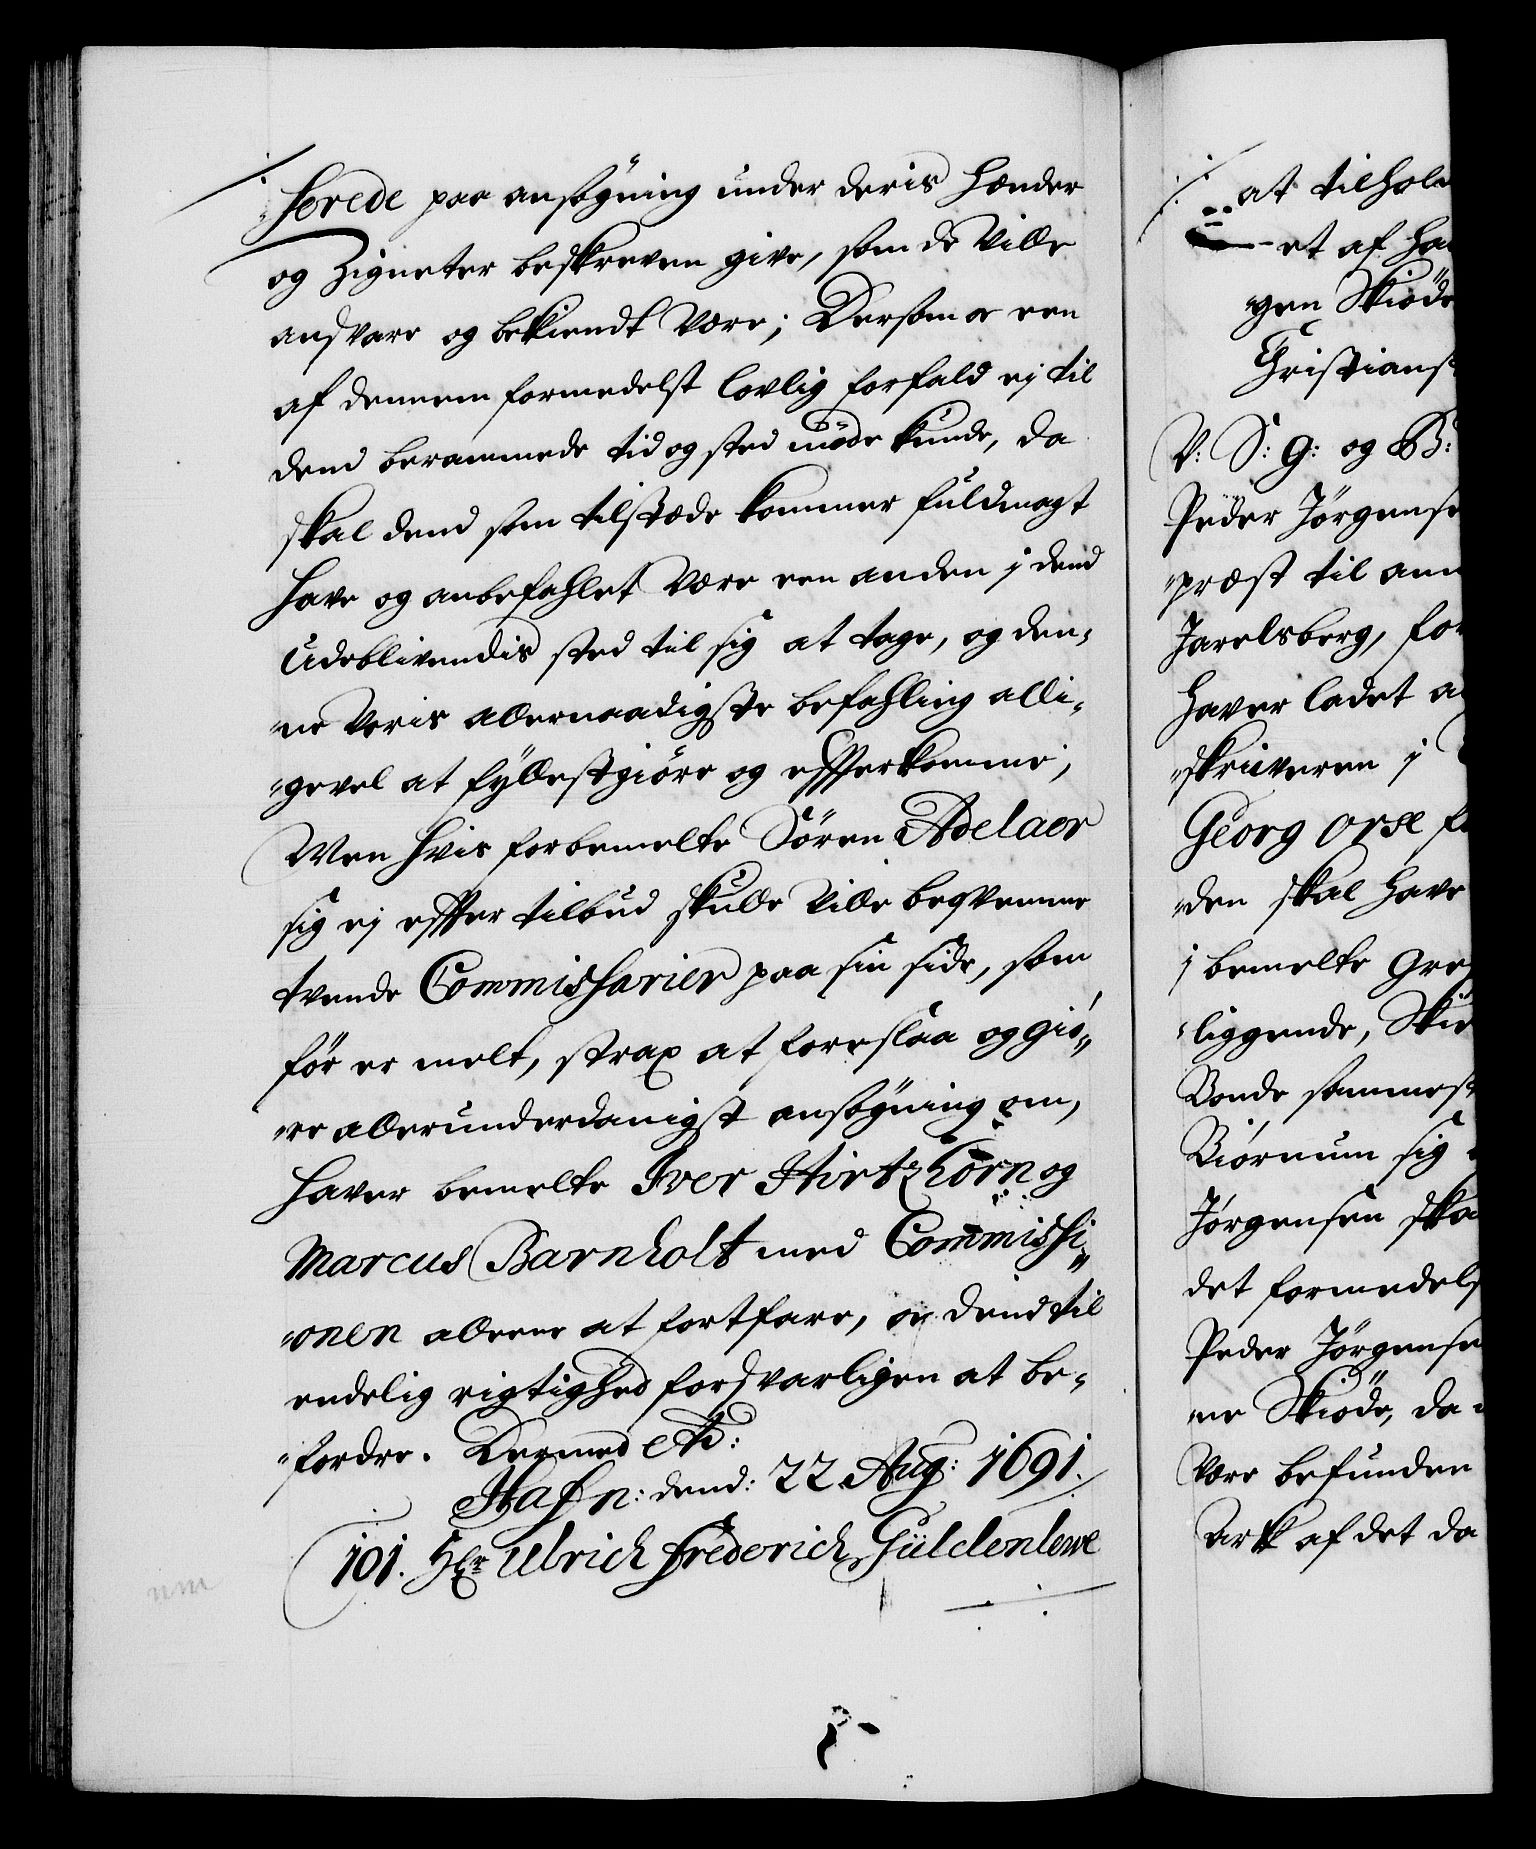 „serede paa ansøgning under deris hænder
og Zigneter beskreven give, som de ville
andsvare og bekiendt være; Dersom oc een
af dennem formedelst lovlig forfald ej til
dend berammede tid og sted møde kunde, da
skal dend som tilstæde kommer fuldmagt
have og anbefahlet være een anden i dend
Udeblivendis sted til sig at tage, og den„
„ne Voris allernaadigste befahling alli„
„gevel at fyllestgiøre og effterkomme;
Men hvis forbemelte Søren Adelaer
sig ej effter tilbud skulle ville beqvemme
tvende Commissarier paa sin side, som
før er melt, strax at foreslaa og giø„
„re allerunderdanigst ansøgning om,
haver bemelte Iver Hirtzhorn og
Marcus Barnholt med Commissi„
„onen alleene at fortfare, oc dend til
endelig rigtighed forsvarligen at be„
„fordre. Dermed etc:
Hafn: dend: 22 Aug: 1691.
101. Hr Ulrich Frederich Güldenlewe
at tilhol
et af ha
„gen Skiøde
Christians
V: S: G: og B:
Peder Jørgense
„præst til ann
Jarelsberg, for
haver ladet a
„skriiveren i
Georg Orse f
„den skal have
i bemelte Gre
„liggende, Skiø
Bonde sommest
Biørnum sig
Jørgensen ska
det formedels
Peder Jørgense
„ne Skiøde, da
være befunden
Ark af det da